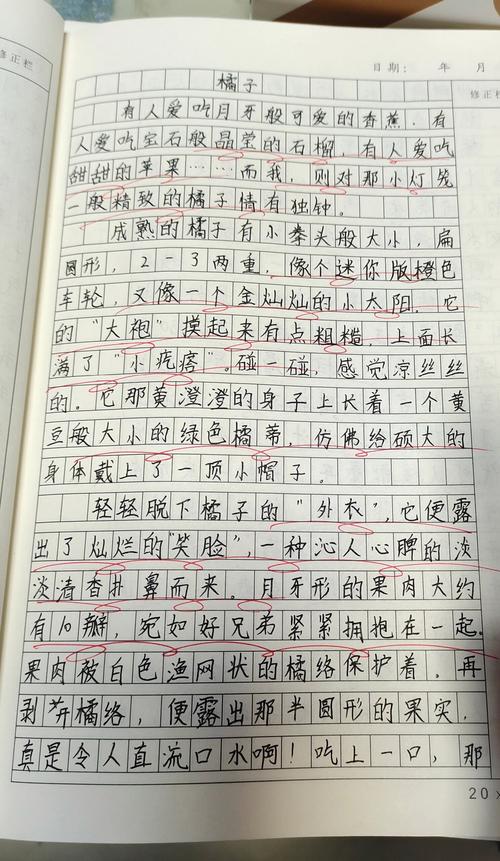 修正栏
日期： 年 月
修正栏
橘子
有人爱吃月牙般可爱的香蕉，有
人爱吃宝石般晶莹的石榴，有人爱吃
甜甜的苹果……而我，则对那小灯笼
一般精致的橘子情有独钟。
成熟的橘子有小拳头般大小，扁
圆形，2-3两重，像个迷你版橙色
车轮，又像一个金灿灿的小太阳。它
的“大袍”摸起来有点粗糙，上面长
满了“小疙瘩”。碰一碰，感觉凉丝丝
的。它那黄澄澄的身子上长着一个黄
豆般大小的绿色橘蒂，仿佛给硕大的
身体戴上了一顶小帽子。
轻轻脱下橘子的“外衣”，它便露
出了灿烂的“笑脸”，一种沁人心脾的淡
淡清香扑鼻而来。月牙形的果肉大约
有10瓣，宛如好兄弟紧紧拥抱在一起。
果肉被白色渔网状的橘络保护着，再
剥开橘络，便露出那半圆形的果实，
真是令人直流口水啊！吃上一口，那
20×